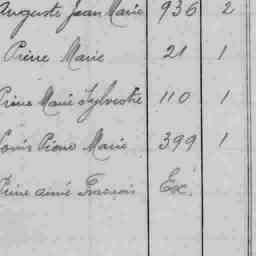 Auguste Jean Marie 936 2
Pierre Marie 21 1
Pierre Marie Sylvestre 110 1
Louis Pierre Marie 399 1
Pierre Aimé François Ex.